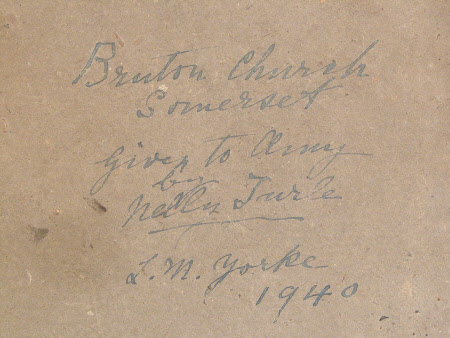 Bruton Church
Somerset
Given to Amy
by
Nelly Turle
L. M. Yorke
1940